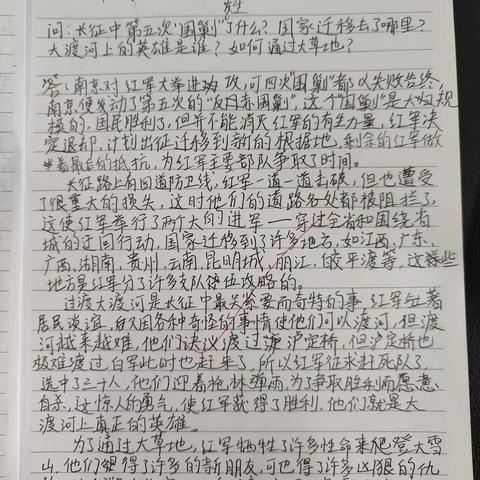 问:长征中第五次“国剿”了什么?国家迁移去了哪里?
大渡河上的英雄是谁?如何通过大草地?
答:南京对红军大举进攻,可四次“围剿”都以失败告终,
南京便发动了第五次的“反围剿”,这个“围剿”是大规
模的,国民胜利了,但并不能消灭红军的有生力量,红军决
定退却,计划出征迁移到新的根据地,剩余的红军做
着最后的抵抗,为红军主要部队争取了时间。
长征路上有四道防卫线,红军一道一道击破,但也遭受
了很重大的损失,这时他们的道路各处都被阻拦了,
这使红军举行了两个大的进军——穿过全省和围绕省
城的迂回行动,国家迁移到了许多地方,如江西、广东、
广西、湖南、贵州、云南、昆明城、丽江、皎平渡等,这些
地方是红军分了许多队伍攻略的。
过渡大渡河是长征中最关紧要而奇特的事,红军与著
居民谈谊,自又因各种奇怪的事情使他们可以渡河,但渡
河越来越难,他们决议渡过泸定桥,但泸定桥也
极难渡过,白军此时也赶来了,所以红军征求敢死队了,
选中了三十人,他们迎着枪林弹雨,为了争取胜利而愿意
自杀,这惊人的勇气,使红军获得了胜利,他们就是大
渡河上真正的英雄。
为了通过大草地,红军牺牲了许多性命来爬登大雪
山,他们得了许多的新朋友,可也得了许多凶狠的仇